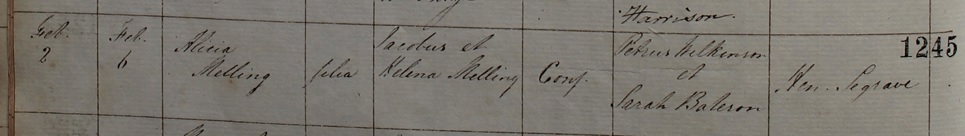 Harrison.
Feb.
2
Feb.
6
Alicia
Melling
filia
Jacobus et
Helena Melling
Conj.
Petrus Wilkinson
et
Sarah Bateson
Hen. Segrave
1245